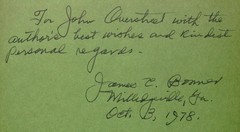 For John Overstreet with the
author's best wishes and kindest
personal regards.
James C. Bonner
Milledgeville, Ga
Oct. 3, 1978.